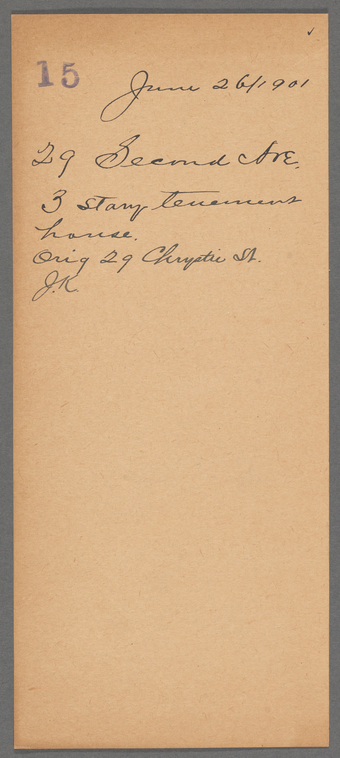 15
June 26/1901
29 Second Ave.
3 story tenement
house.
Orig 29 Chrystie St.
J.K.